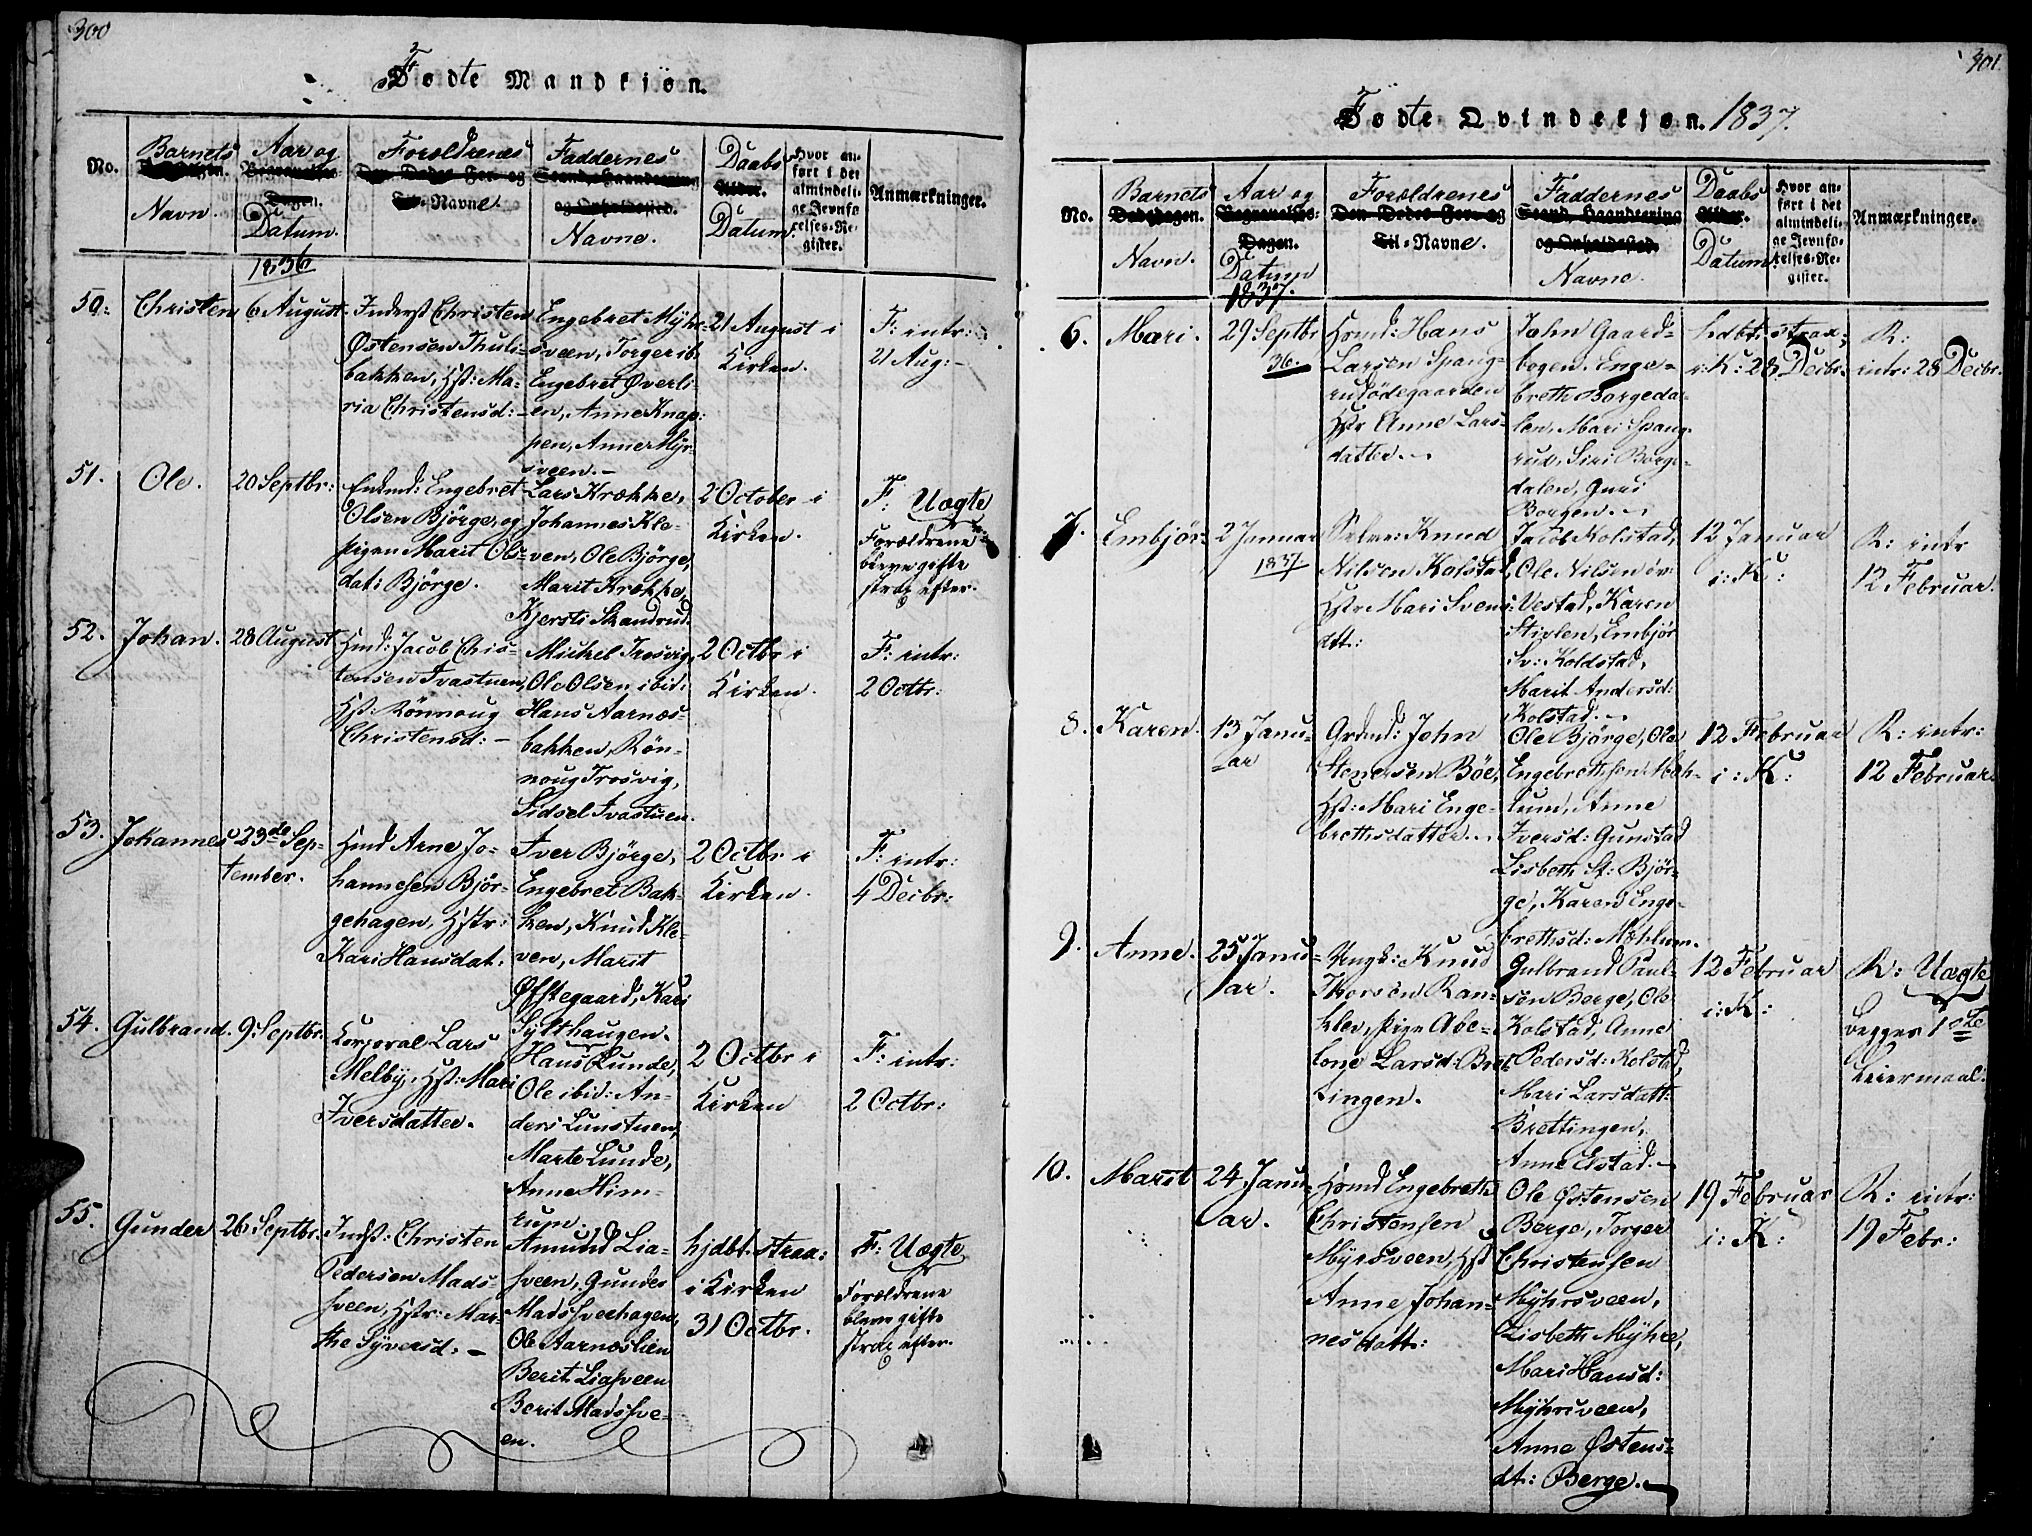 300
Fødte Mandkjøn.
No.
Barnets
Navn.
Aar og
Begravelses-
Dagen.
Datum.
Forældrenes
Den Dødes For- og
Til-Navne.
Faddernes
Stand, Haandtering
og Opholdssted.
Navne.
Daabs
Alder.
Datum.
Hvor an-
ført i det
almindeli-
ge Jevnfø-
relses-Re-
gister.
Anmærkninger.
1836
50.
Christen
6 August
Inderst Christen
Østensen Thuli-
bakken, Hst: Ma-
ria Christensd: -
Engebret Myhr-
sveen, Torger ib.
Engebret Øverli-
en, Anne Knap-
pen, Anne Myr-
sveen. -
21 August i
Kirken.
F: intr:
21 Aug: -
51.
Ole.
20 Septbr:
Enkmd: Engebret
Olsen Bjørge, og
pigen Marit Ols-
dat: Bjørge.
Lars Krække,
Johannes Kle-
ven, Ole Bjørge,
Marit Krække,
Kjersti Skandrud.
2 October i
Kirken.
F: Uægte
Forældrene
bleve gifte
strax efter.
52.
Johan.
28 August
Hmd: Jacob Chris-
tensen Ivastuen,
Hst: Rönnoug
Christensd: -
Mickel Trosvig,
Ole Olsen ibid:
Hans Aarnæs-
bakken, Rön-
noug Trosvig,
Sidsel Ivastuen.
2 Octbr i
Kirken.
F: intr:
2 Octbr:
53.
Johannes
23de Sep-
tember.
Hmd Arne Jo-
hannesen Bjør-
gehagen, Hstr:
Kari Hansdat:
Iver Bjørge,
Engebret Bak-
ken, Knud Kle-
ven, Marit
Øfstegaard, Kari
Sylthaugen.
2 Octbr i
Kirken.
F: intr:
4 Decbr:
54.
Gulbrand.
9 Septbr.
Korporal Lars
Melby, Hst: Mari
Iversdatter.
Hans Lunde,
Ole ibid: An-
ders Lunstuen,
Marte Lunde,
Anne Him-
rum.
2 Octbr i
Kirken
F: intr:
2 Octbr:
55.
Gunder
26 Septbr.
Indst: Christen
Pedersen Mads-
sveen, Hstr: Mar-
the Syversd: -
Amund Lia-
sveen, Gunder
Madssveehagen,
Ole Aarnæslien
Berit Liasveen
Berit Madssve-
en.
hjdbt. strax:
i Kirken
31 Octbr.
F: Uægte
Forældrene
bleve gifte
strax efter.
301
Fødte Qvindekjøn. 1837.
No.
Barnets
Dødsdagen.
Navn.
Aar og
Begravelses-
Dagen.
Datum
1837.
Forældrenes
Den Dødes For- og
Til-Navne.
Faddernes
Stand, Haandtering
og Opholdssted.
Navne.
Daabs
Alder.
Datum.
Hvor an-
ført i det
almindeli-
ge Jevnfø-
relses-Re-
gister.
Anmærkninger.
6.
Mari.
29 Septbr
36.
Hsmd: Hans
Larsen Spang-
rudødegaarden
Hstr Anne Lars-
datter.
John Gaard-
bogen, Enge-
breth Borgeda-
len, Mari Spang-
rud, Siri Borge-
dalen, Guri
Borgen.
hdbt: strax;
i: K: 28 Decbr.
R:
intr: 28 Decbr.
7.
Embjør
2 Januar
1837
Knud
Nilsen Kolstad,
Hstr Mari Svens-
dtt:
Jacob Kolstad,
Ole Nilsen
Vestad, Karen
Stivlen, Embjør
Sv: Koldstad,
Marit Andersd:
Kolstad.
12 Januar
i: K:
R: intr
12 Februar.
8.
Karen.
13 Janu-
ar
Grdmd: John
Stenersen Böe,
Hst: Mari Enge-
brethsdatter.
Ole Bjørge, Ole
Engebrethsen Moh-
lum, Anne
Iversd: Gunstad
Lisbeth St: Bjør-
ge, Karen Enge-
brethsd: Mohlum.
12 Februar
i: K:
R: intr:
12 Februar
9.
Anne.
25 Janu-
ar.
Ungk: Knud
Thorsen Ran-
klev, pige Abe-
lone Larsd: Bret-
tingen.
Gulbrand Paul-
sen Berge, Ole
Kolstad, Anne
Pedersd: Kolstad,
Mari Larsdatt:
Brettingen,
Anne Elstad.
12 Februar
i: K:
R: Uægte
begges 1ste
Leiermaal.
10.
Marit
24 Janu-
ar.
Hsmd Engebreth
Christensen
Myrsveen, Hst
Anne Johan-
nesdatt:
Ole Østensen
Berge, Torger
Christensen
Myhrsveen,
Lisbeth Myhre,
Mari Hansd:
Myhrsveen,
Anne Østens-
dt: Berge.
19 Februar
i: K:
R: intr:
19 Febr: